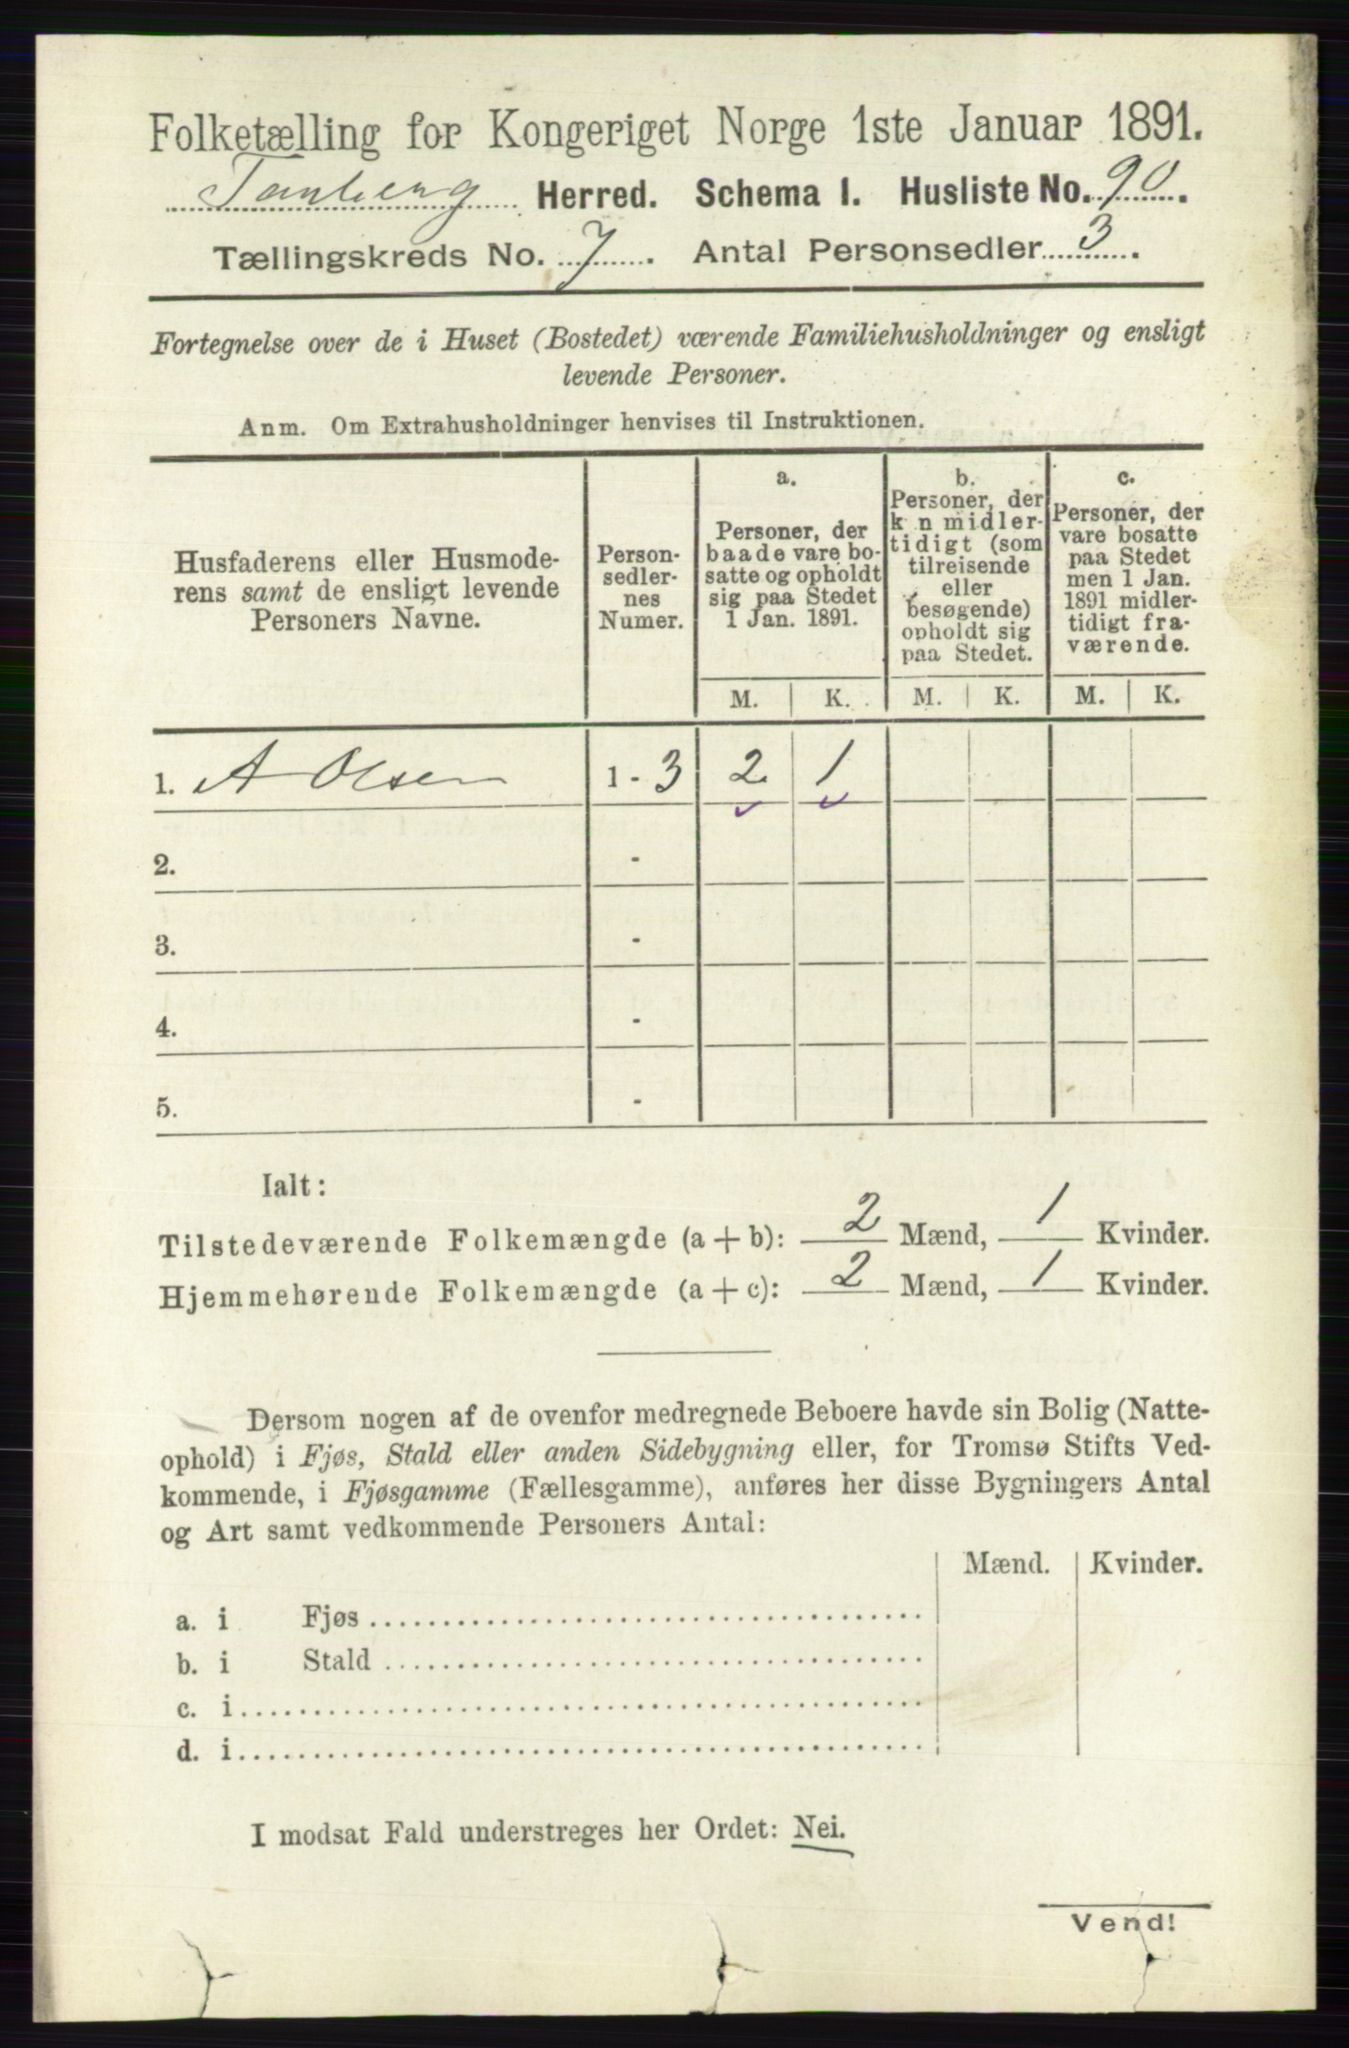 Folketælling for Kongeriget Norge 1ste Januar 1891.
Tanberg Herred. Schema I. Husliste No. 90.
Tællingskreds No. 7. Antal Personsedler 3.
Fortegnelse over de i Huset (Bostedet) værende Familiehusholdninger og ensligt
levende Personer.
Anm. Om Extrahusholdninger henvises til Instruktionen.
Husfaderens eller Husmode-
rens samt de ensligt levende
Personers Navne.
Person-
sedler-
nes
Numer.
a.
Personer, der
baade vare bo-
satte og opholdt
sig paa Stedet
1 Jan. 1891.
b.
Personer, der
k n midler-
tidigt (som
tilreisende
eller
besøgende)
opholdt sig
paa Stedet.
c.
Personer, der
vare bosatte
paa Stedet
men 1 Jan.
1891 midler-
tidigt fra-
værende.
M. K. M. K. M. K.
1. A Olsen 1 - 3 2 1
2. -
3. -
4. -
5. -
Ialt:
Tilstedeværende Folkemængde (a + b): 2 Mænd, 1 Kvinder.
Hjemmehørende Folkemængde (a + c): 2 Mænd, 1 Kvinder.
Dersom nogen af de ovenfor medregnede Beboere havde sin Bolig (Natte-
ophold) i Fjøs, Stald eller anden Sidebygning eller, for Tromsø Stifts Ved-
kommende, i Fjøsgamme (Fællesgamme), anføres her disse Bygningers Antal
og Art samt vedkommende Personers Antal:
Mænd. Kvinder.
a. i Fjøs
b. i Stald
c. i
d. i
I modsat Fald understreges her Ordet: Nei.
Vend!